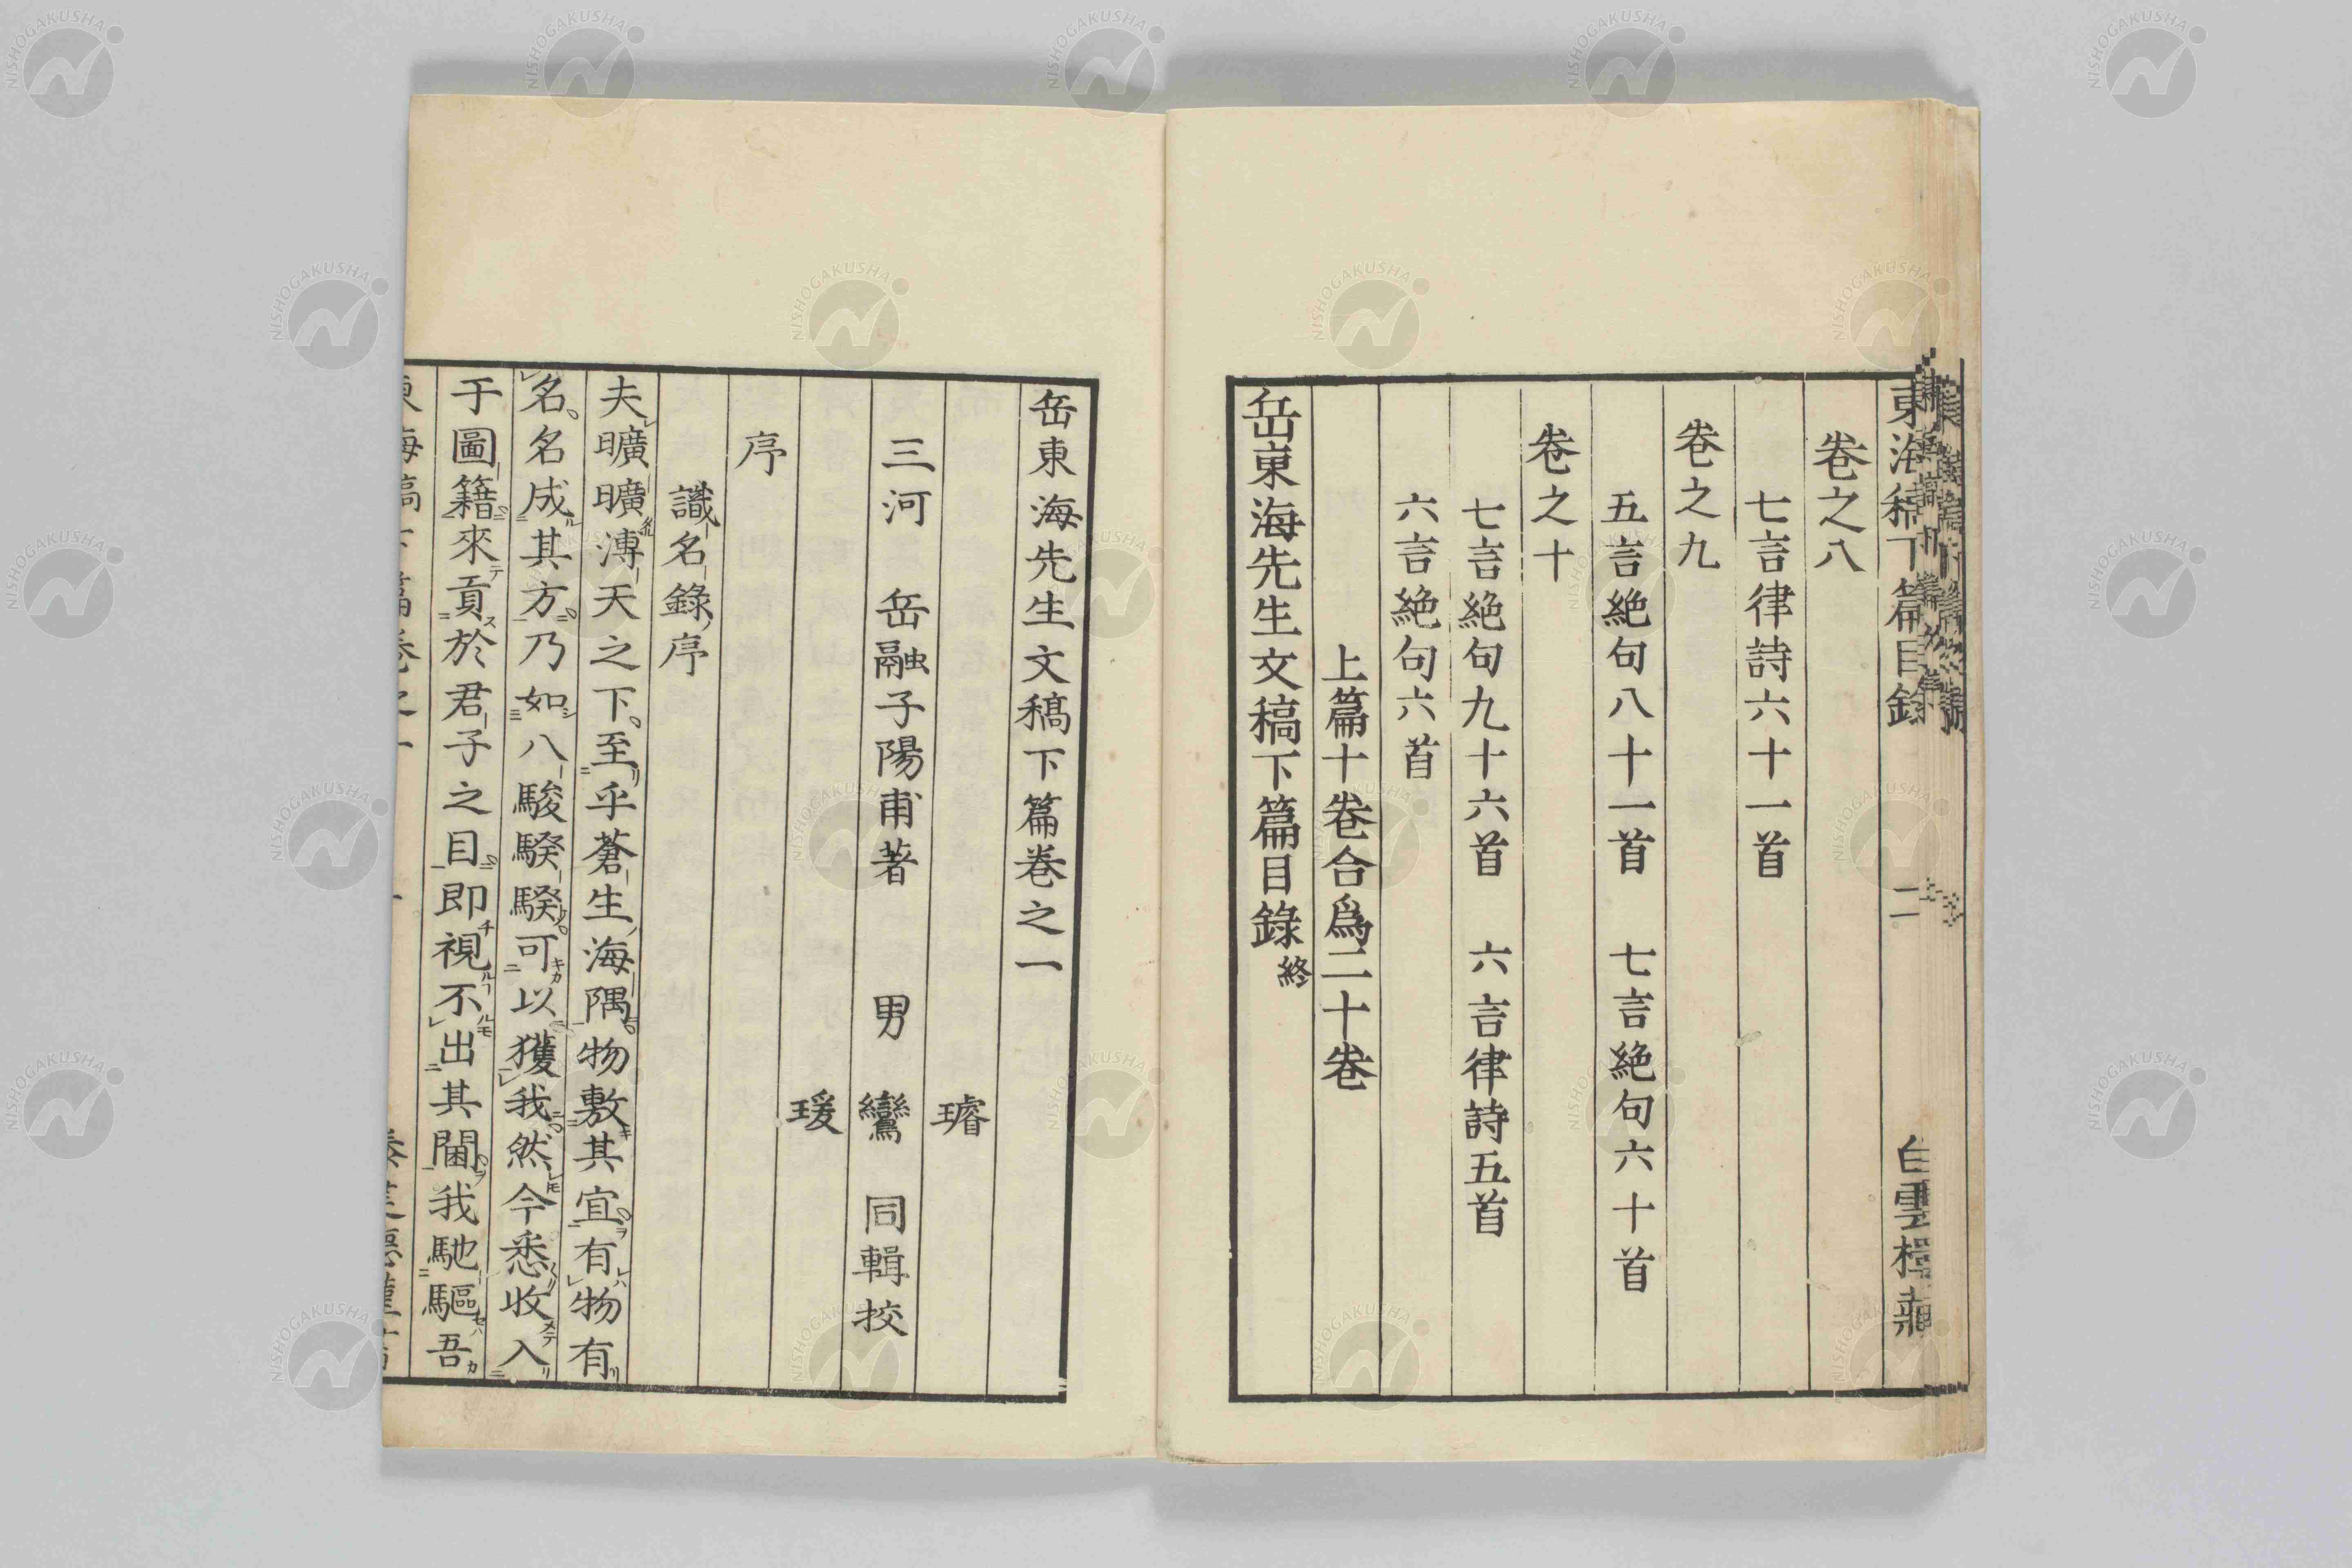 東海稿下篇目錄 二 白雲樓藏
卷之八
七言律詩六十一首
卷之九
五言絶句八十一首 七言絶句六十首
卷之十
七言絶句九十六首 六言律詩五首
六言絶句六首
上篇十卷合爲二十卷
岳東海先生文稿下篇目錄終
岳東海先生文稿下篇卷之一
瑃
三河 岳融子陽甫著 男 鸞 同輯校
瑗
序
識名錄序
夫曠曠溥天之下至乎蒼生海隅物敷其宜有物有
名名成其方乃如八駿騤騤可以獲我然今悉收入
于圖籍來貢於君子之目即視不出其閫我馳驅吾
東海稿下篇卷之一
NISHOGAKUSHA